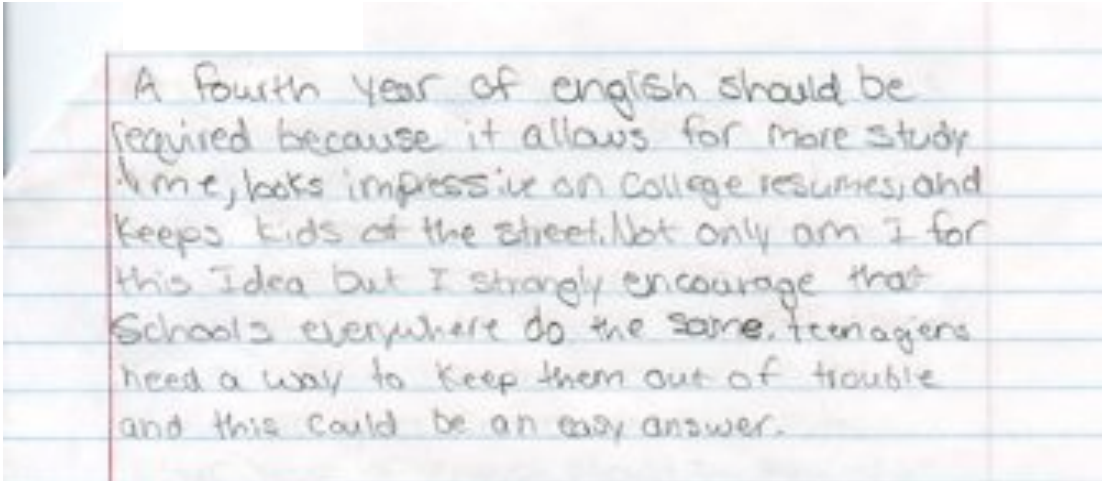 A fourth year of english should be
required because it allows for more study
time, looks impressive on college resumes, and
keeps kids of the street. Not only am I for
this Idea but I strongly encourage that
Schools everywhere do the same. teenagers
need a way to keep them out of trouble
and this could be an easy answer.